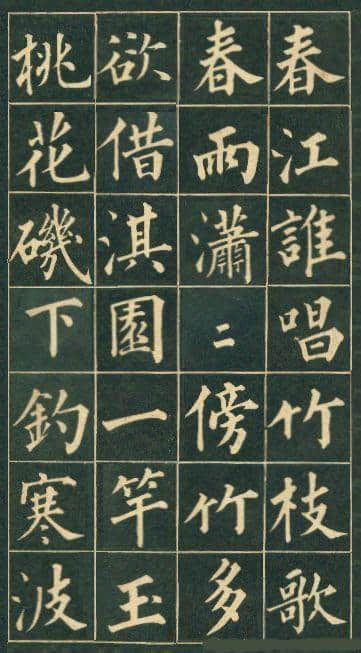 春江誰唱竹枝歌
春雨瀟二傍竹多
欲借淇園一竿玉
桃花磯下釣寒波